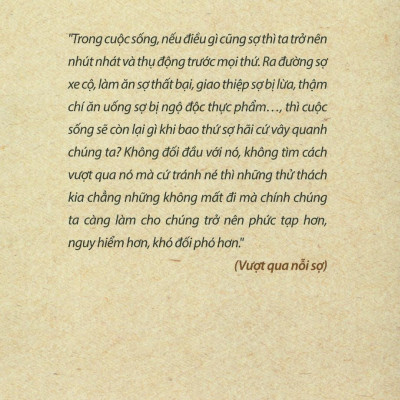 "Trong cuộc sống, nếu điều gì cũng sợ thì ta trở nên
nhút nhát và thụ động trước mọi thứ. Ra đường sợ
xe cộ, làm ăn sợ thất bại, giao thiệp sợ bị lừa, thậm
chí ăn uống sợ bị ngộ độc thực phẩm…, thì cuộc
sống sẽ còn lại gì khi bao thứ sợ hãi cứ vây quanh
chúng ta? Không đối đầu với nó, không tìm cách
vượt qua nó mà cứ tránh né thì những thử thách
kia chẳng những không mất đi mà chính chúng
ta càng làm cho chúng trở nên phức tạp hơn,
nguy hiểm hơn, khó đối phó hơn."
(Vượt qua nỗi sợ)